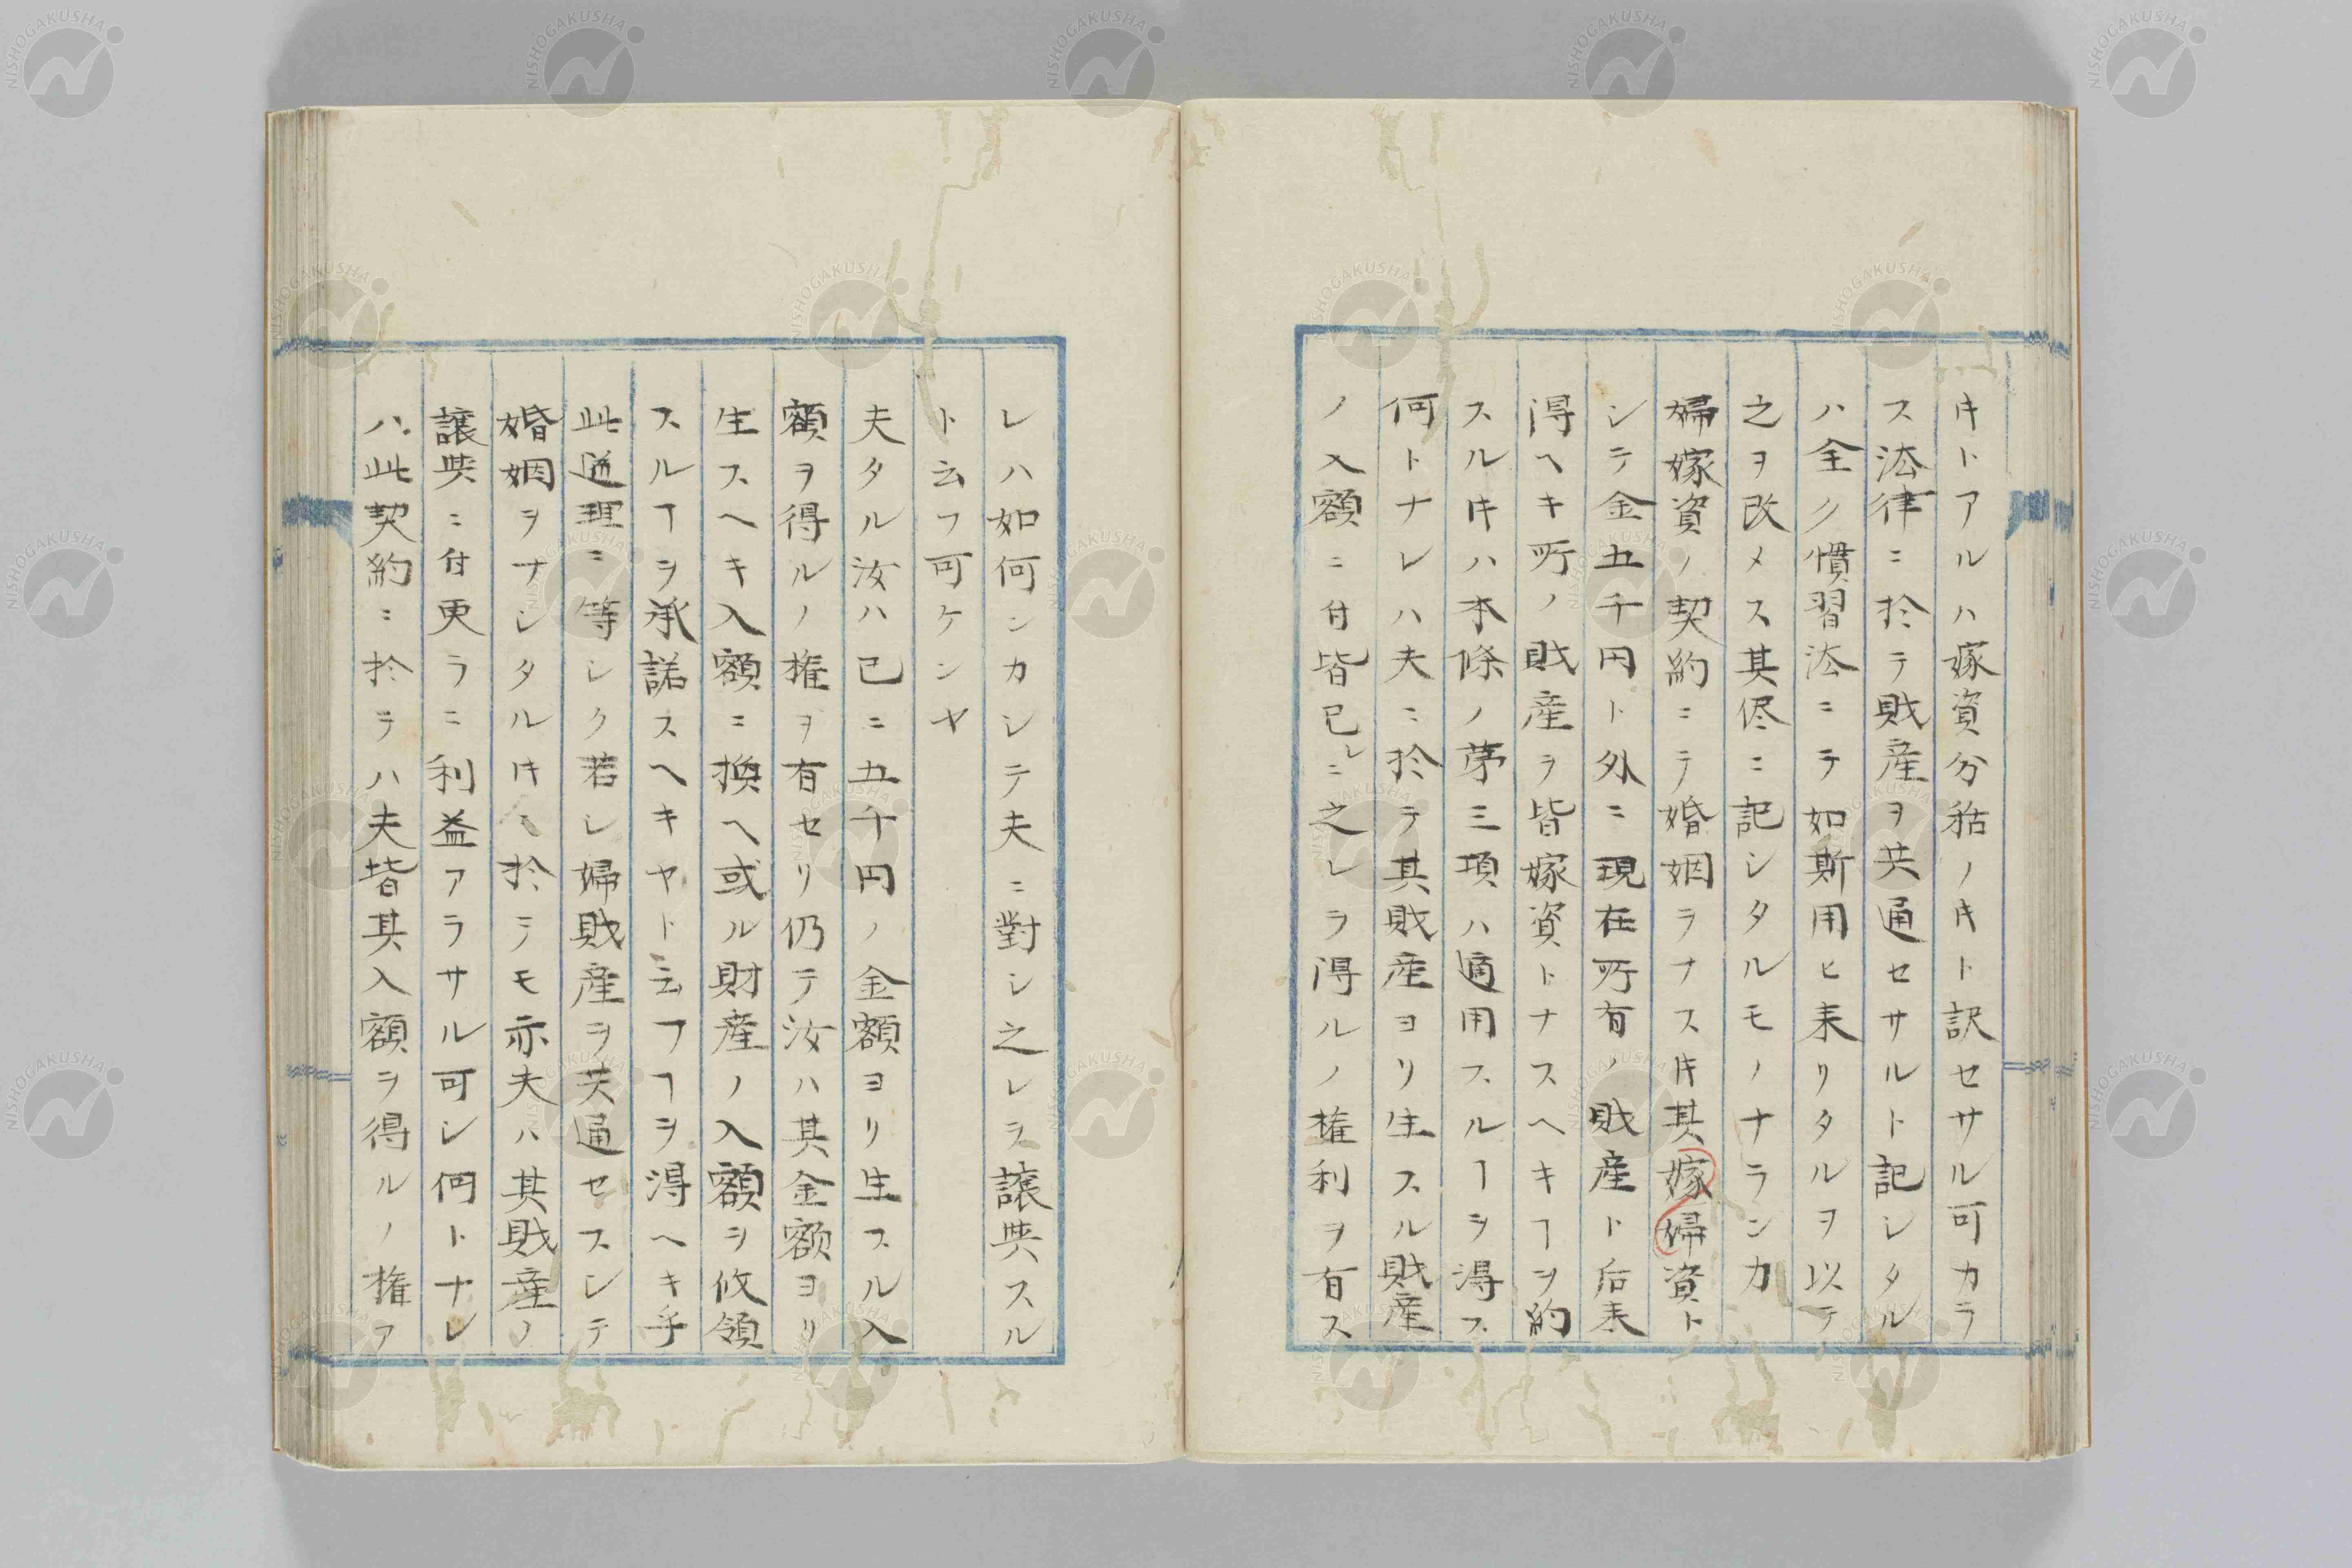 𪜈トアルハ嫁資分括ノ𪜈ト訳セサル可カラ
ス法律ニ於テ財産ヲ共通セサルト記シタル
ハ全ク慣習法ニテ如斯用ヒ来リタルヲ以テ
之ヲ改メス其侭ニ記シタルモノナランカ
婦嫁資ノ契約ニテ婚姻ヲナス𪜈其嫁婦資ト
シテ金五千円ト外ニ現在所有ノ財産ト后来
得ヘキ所ノ財産ヲ皆嫁資トナスヘキヿヲ約
スル𪜈ハ本條ノ茅三項ハ適用スルヿヲ得ス
何トナレハ夫ニ於テ其財産ヨリ生スル財産
ノ入額ニ付皆已レニ之レヲ得ルノ権利ヲ有ス
レハ如何ンカシテ夫ニ對シ之レヲ譲与スル
ト云フ可ケンヤ
夫タル汝ハ已ニ五千円ノ金額ヨリ生スル入
額ヲ得ルノ権ヲ有セリ仍テ汝ハ其金額ヨリ
生スヘキ入額ニ換ヘ或ル財産ノ入額ヲ收領
スルヿヲ承諾スヘキヤト云フヿヲ得ヘキ乎
此道理ニ等シク若シ婦財産ヲ共通セスシテ
婚姻ヲナシタル𪜈ニ於テモ亦夫ハ其財産ノ
譲与ニ付更ラニ利益アラサル可シ何トナレ
ハ此契約ニ於テハ夫皆其入額ヲ得ルノ権ア